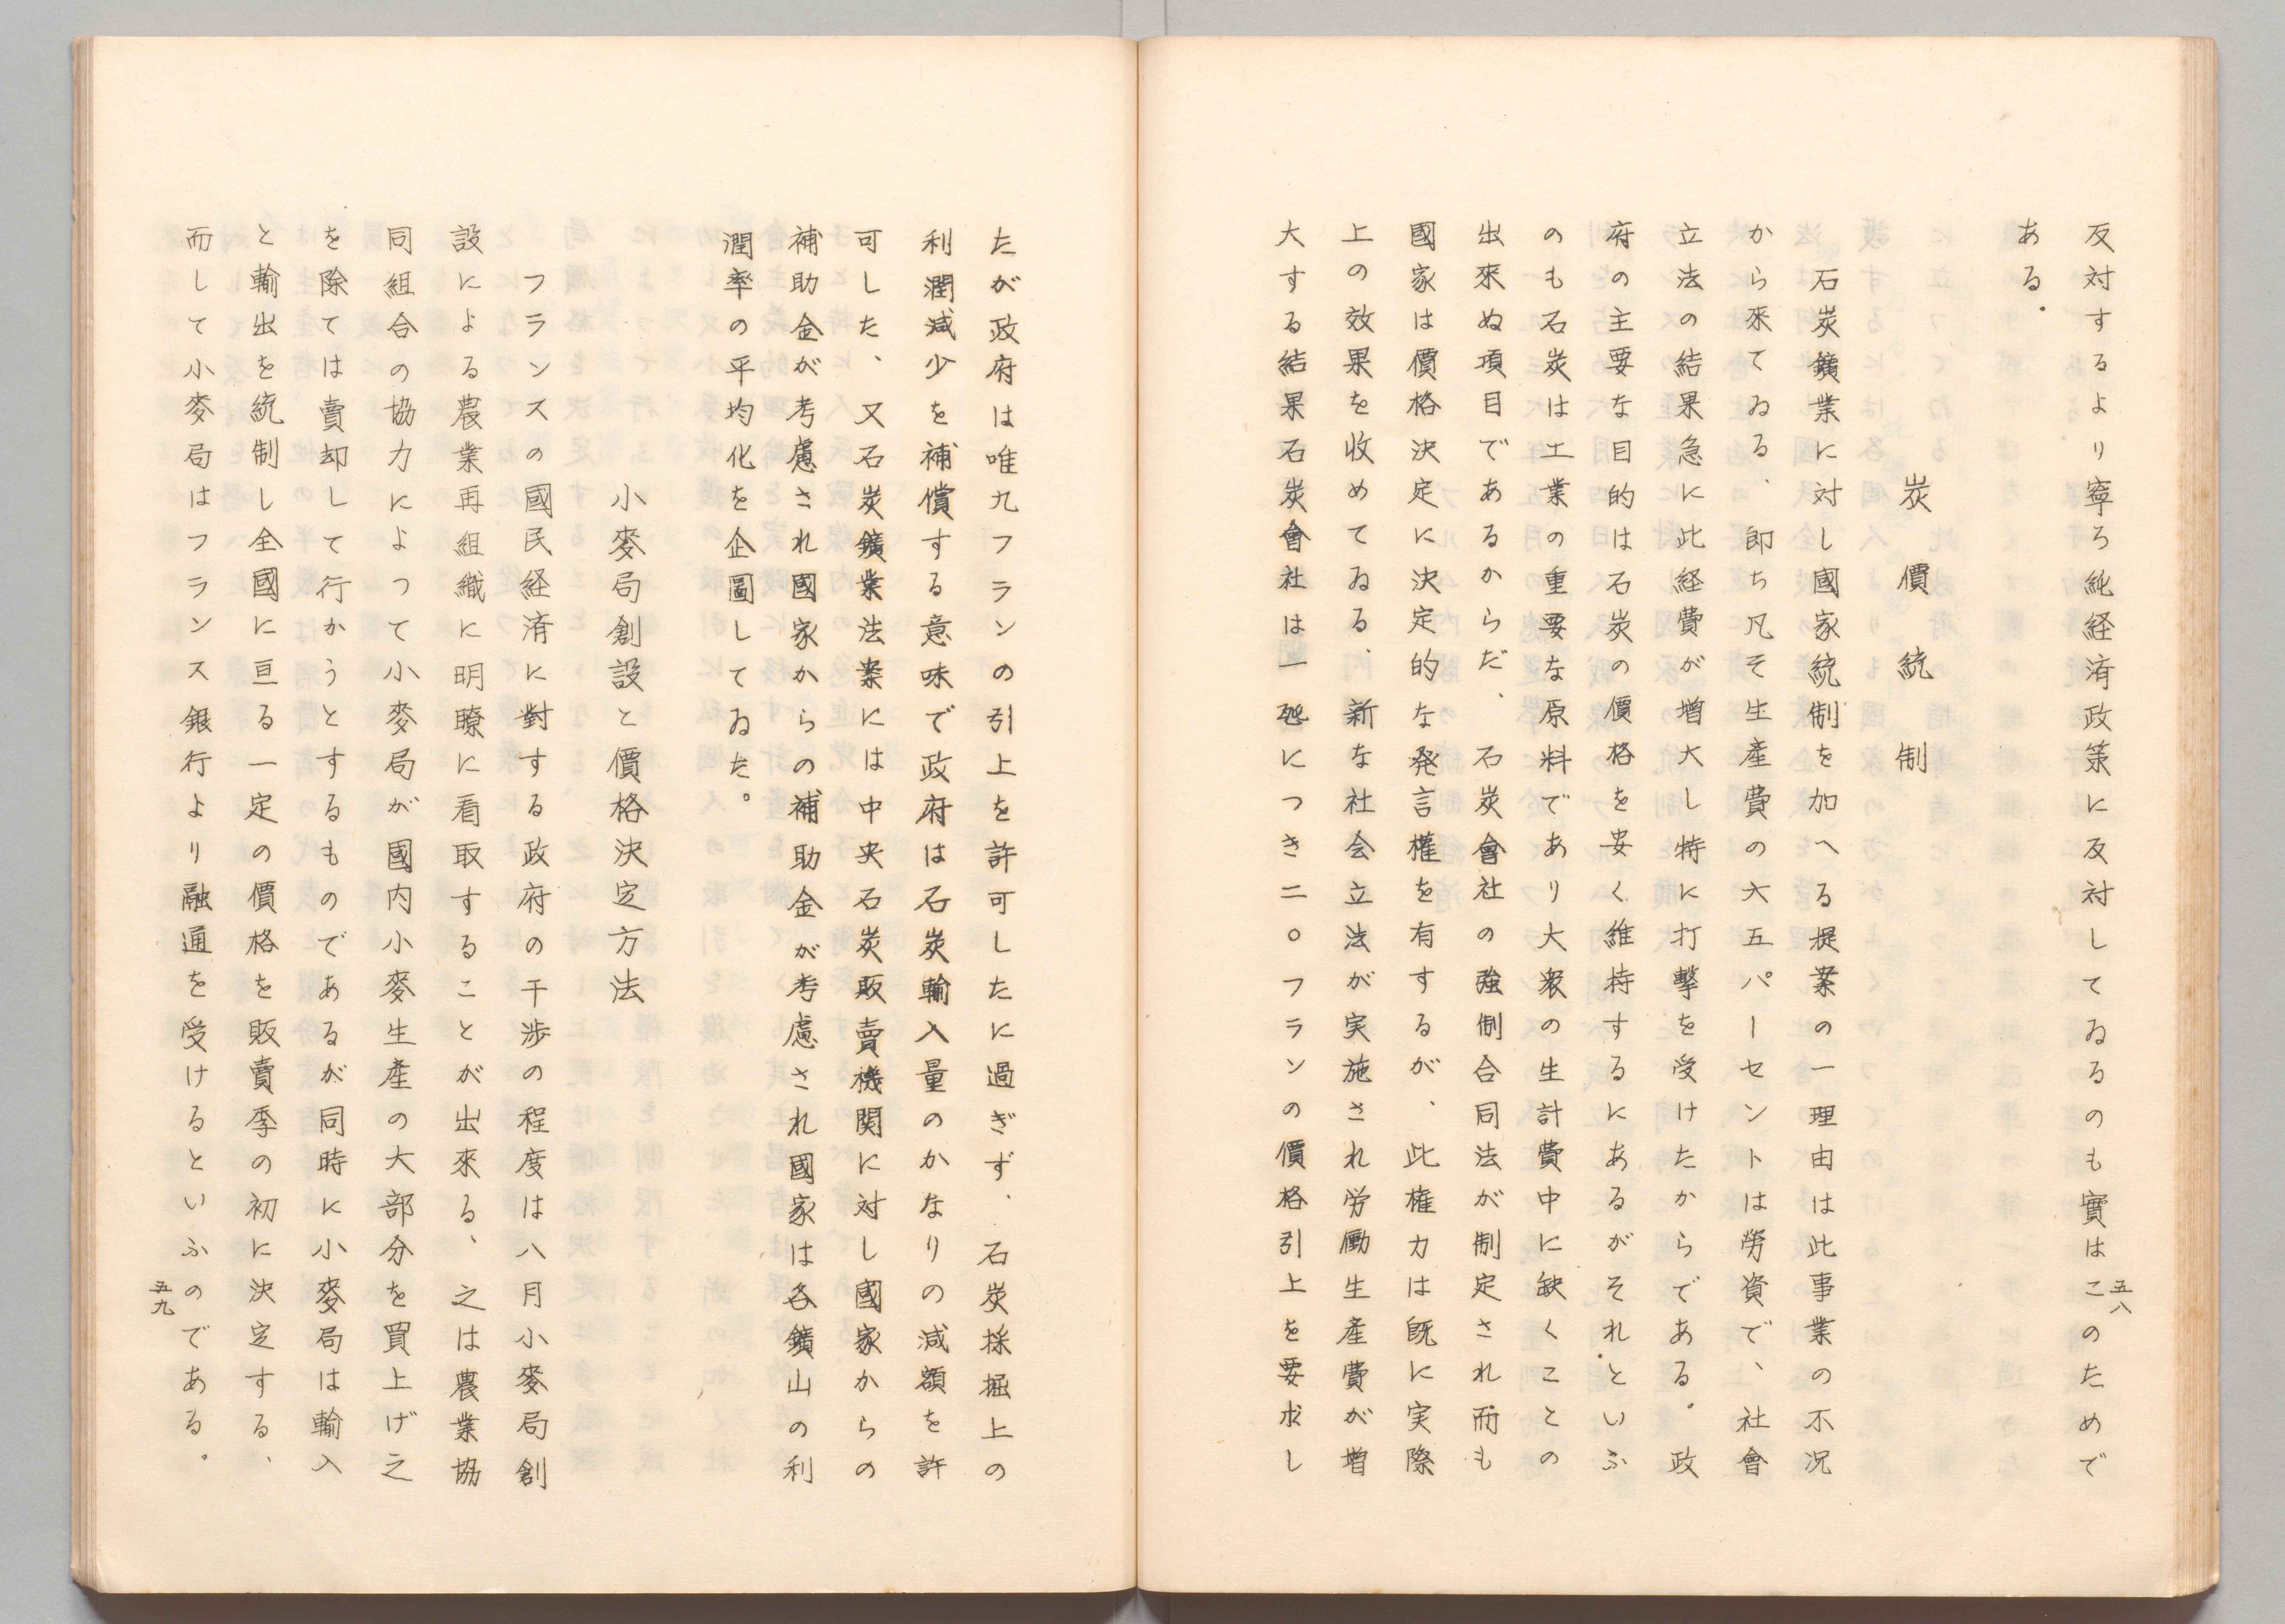 反対するより寧ろ純経済政策に反対してゐるのも實はこのためで
ある。
炭價統制
石炭鑛業に対し國家統制を加へる提案の一理由は此事業の不況
から來てゐる、即ち凡そ生産費の六五パーセントは勞資で、社會
立法の結果急に此経費が増大し特に打擊を受けたからである。政
府の主要な目的は石炭の價格を安く維持するにあるがそれといふ
のも石炭は工業の重要な原料であり大衆の生計費中に缺くことの
出來ぬ項目であるからだ、石炭會社の強制合同法が制定され而も
國家は價格決定に決定的な発言權を有するが、此権力は既に実際
上の效果を收めてゐる、新な社会立法が実施され労働生産費が増
大する結果石炭會社は一瓲につき二〇フランの價格引上を要求し
五八
たが政府は唯九フランの引上を許可したに過ぎず、石炭採掘上の
利潤減少を補償する意味で政府は石炭輸入量のかなりの減額を許
可した、又石炭鑛業法案には中央石炭販賣機関に対し國家からの
補助金が考慮され國家からの補助金が考慮され國家は各鑛山の利
潤率の平均化を企圖してゐた。
小麥局創設と價格決定方法
フランスの國民経済に對する政府の干渉の程度は八月小麥局創
設による農業再組織に明瞭に看取することが出來る、之は農業協
同組合の協力によつて小麥局が國内小麥生產の大部分を買上げ之
を除ては賣却して行かうとするものであるが同時に小麥局は輸入
と輸出を統制し全國に亘る一定の價格を販賣季の初に決定する、
而して小麥局はフランス銀行より融通を受けるといふのである。
五九